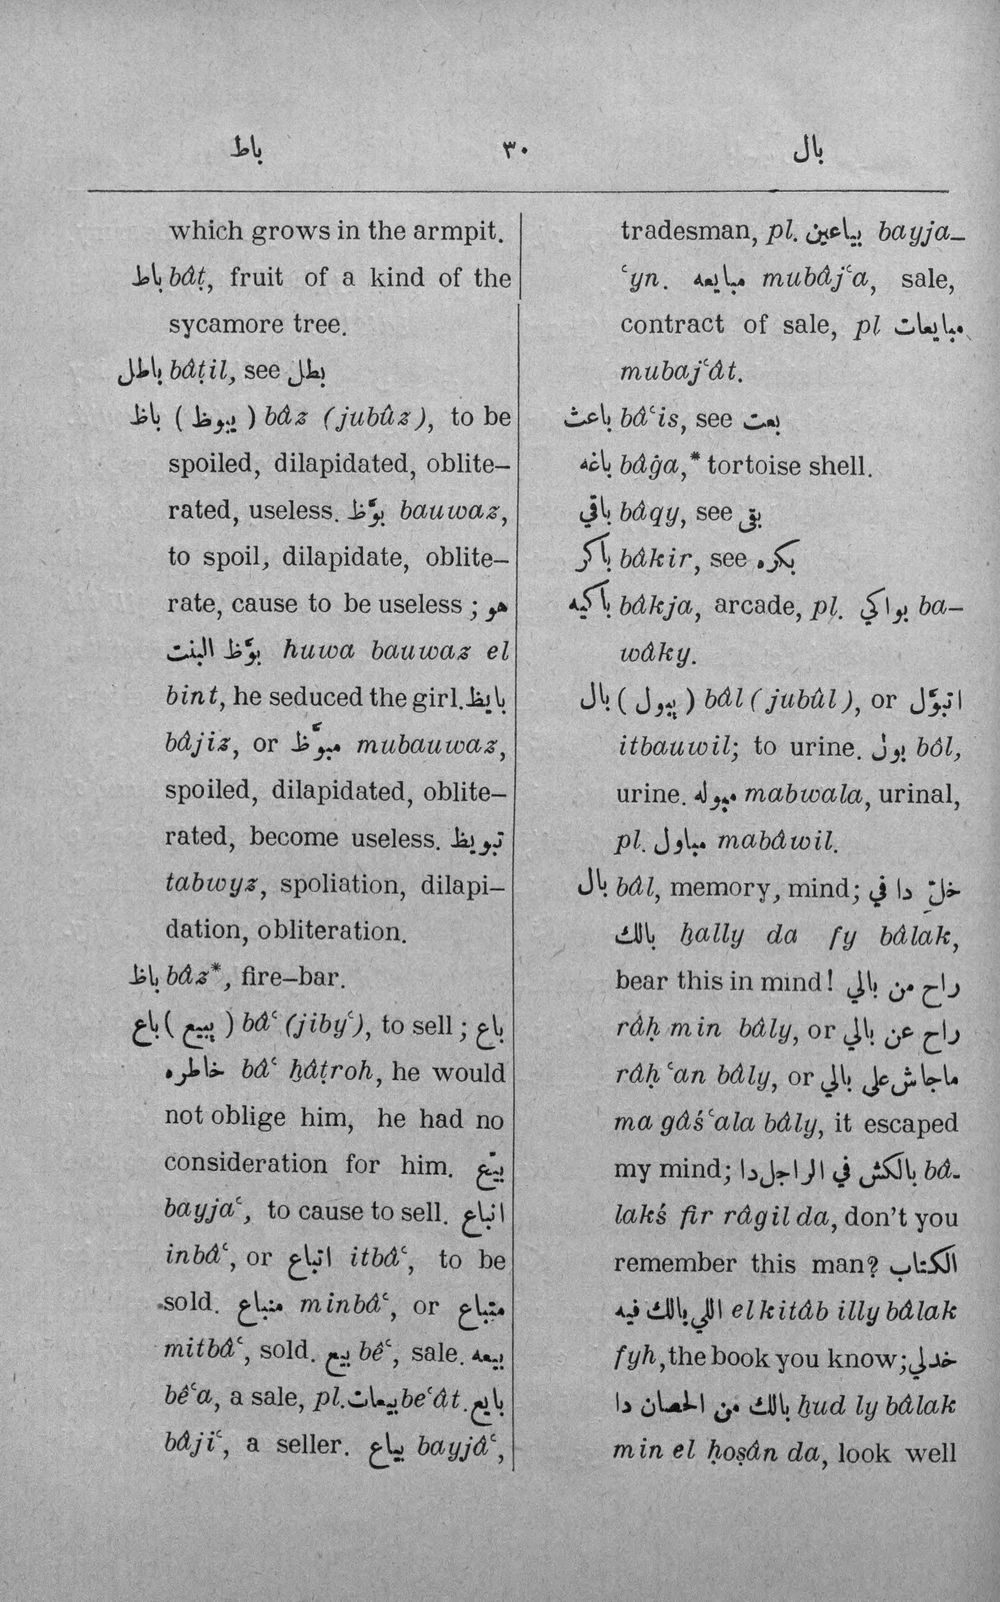 باط ٣٠ بال
which grows in the armpit.
باط bâṭ, fruit of a kind of the
sycamore tree.
باطل bâṭil, see بطل
باظ (يبوظ) bâz (jubûz), to be
spoiled, dilapidated, oblite–
rated, useless. بوَّظ bauwaz,
to spoil, dilapidate, oblite–
rate, cause to be useless ; هو
بوَّظ البنت huwa bauwaz el
bint, he seduced the girl. بايظ
bâjiz, or مبوَّظ mubauwaz,
spoiled, dilapidated, oblite–
rated, become useless. تبويظ
tabwyz, spoliation, dilapi–
dation, obliteration.
باظ bâz*, fire–bar.
باع (يبيع) bâʿ (jibyʿ), to sell ; باع
خاطره bâʿ ḫâṭroh, he would
not oblige him, he had no
consideration for him. بيَّع
bayjaʿ, to cause to sell. انباع
inbâʿ, or اتباع itbâʿ, to be
sold. منباع minbâʿ, or متباع
mitbâʿ, sold. بيع bêʿ, sale. بيعه
bêʿa, a sale, pl. بيعات beʿât. بايع
bâjiʿ, a seller. بياع bayjâʿ,
tradesman, pl. بياعين bayja–
ʿyn. مبايعه mubâjʿa, sale,
contract of sale, pl مبايعات
mubajʿât.
باعث bâʿis, see بعت
باغه bâġa,* tortoise shell.
باقي bâqy, see بقى
باكر bâkir, see بكره
باكيه bâkja, arcade, pl. بواكي ba–
wâky.
بال (يبول) bâl (jubûl), or اتبوَّل
itbauwil; to urine. بول bôl,
urine. مبوله mabwala, urinal,
pl. مباول mabâwil.
بال bâl, memory, mind; خلِّ دا في
بالك ḫally da fy bâlak,
bear this in mind! راح من بالي
râḥ min bâly, or راح عن بالي
râḥ ʿan bâly, or ماجاش على بالي
ma gâś ʿala bâly, it escaped
my mind; بالكش في الراجل دا bâ–
lakś fir râgil da, don't you
remember this man? الكتاب
اللي بالك فيه el kitâb illy bâlak
fyh, the book you know; خد لي
بالك من الحصان دا ḫud ly bâlak
min el ḥoṣân da, look well